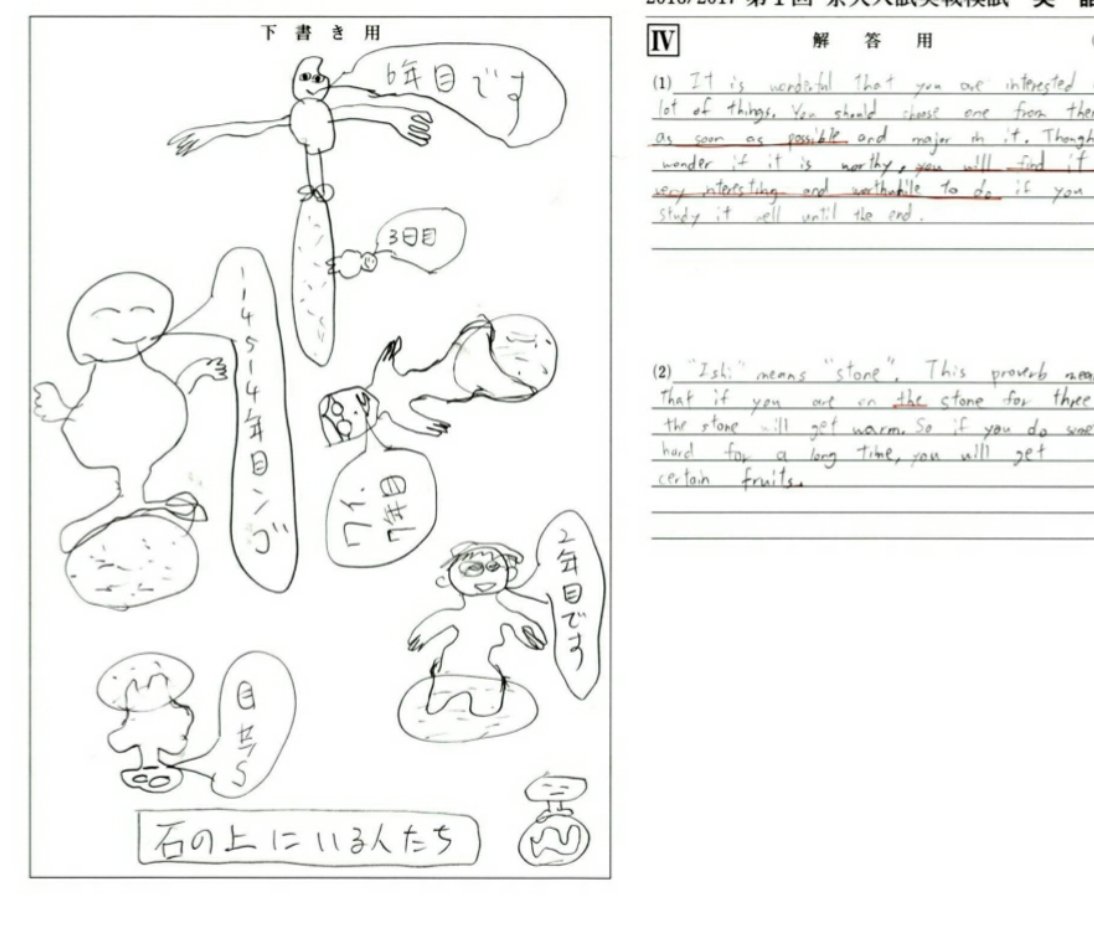 下書き用
6年目です
3日目
114514年目ンゴ
ワイ、
7年目
2年目です
5年目
石の上にいる人たち
2016/2017 第1回 京大入試実戦模試 英
IV 解答用
(1) It is wonderful that you are interested
lot of things. You should choose one from
as soon as possible and major in it. Though
wonder if it is worthy, you will find it
very interesting and worthwhile to do if you
study it well until the end.
(2) "Ishi" means "stone". This proverb
that if you are on the stone for three
the stone will get warm. So if you do
hard for a long time, you will get
certain fruits.